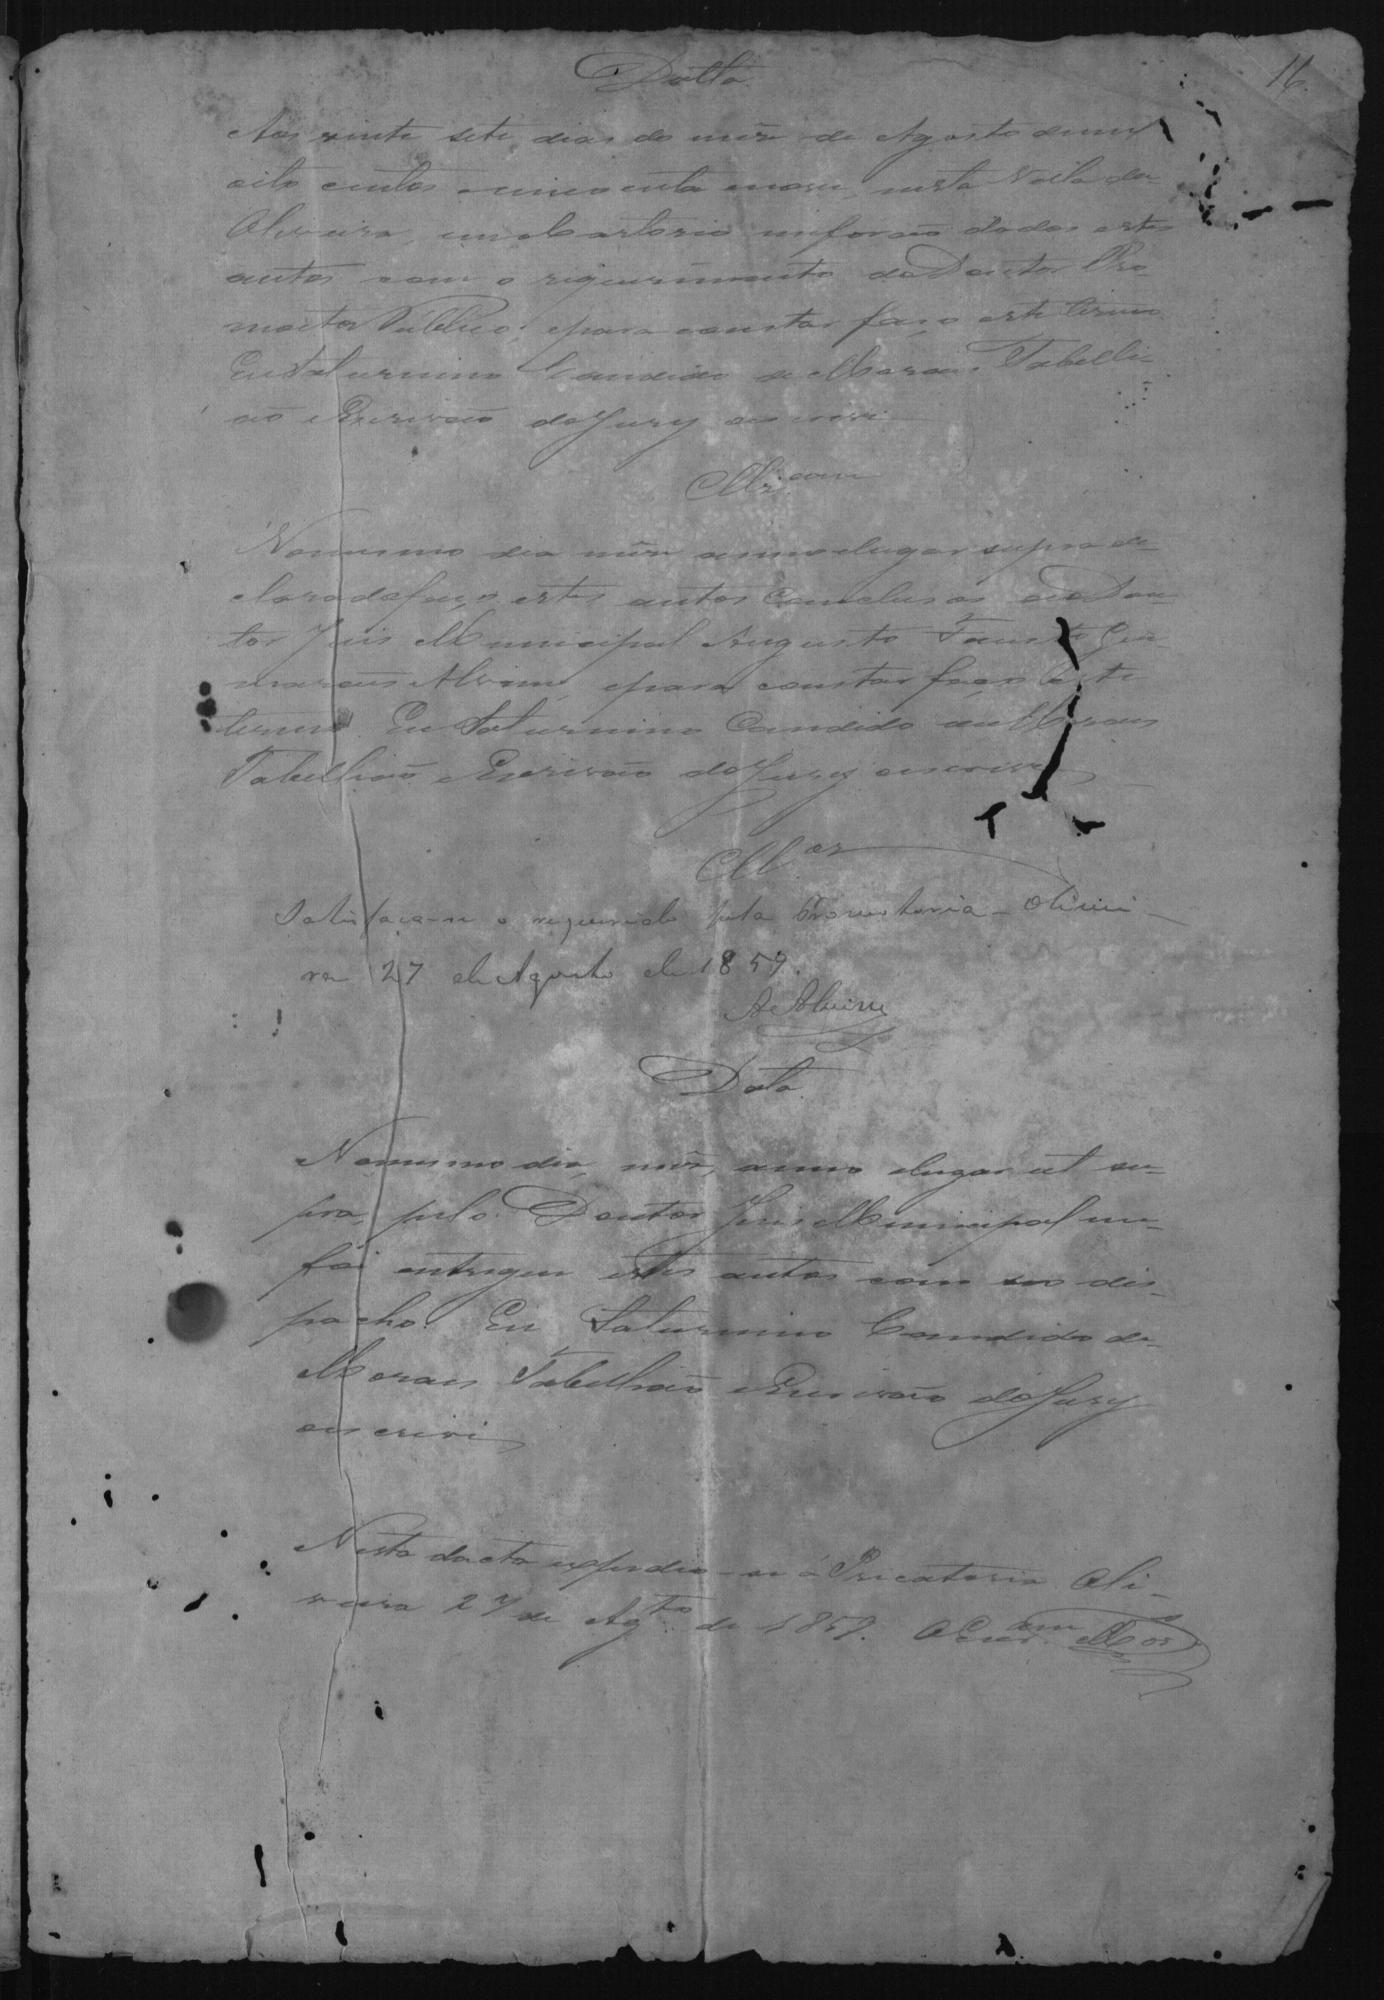 16
Datta
Aos vinte sete dias do mez de Agosto demil
oito centos cincoenta enove, nesta Villa da
Oliveira, emo Cartorio meforão dados estes
autos com o riquerimento do Doutor Pro-
motor Publico; epara constar faço este termo
Eu Saturnino Candido de Moraes Tabelli-
ão Escrivão do Jury oescrevi
Nomesmo dia mez anno elugar supra de-
clarado faço estes autos Conclusos ao Dou-
tor Juis Municipal Augusto Fausto Gui-
marães Alvim, epara constar faço este
termo. Eu Saturnino Candido de Moraes
Tabellião Escrivão do Jury oescrevi
Satisfaça-se o requerido pela Promotoria - Olivei-
ra 27 de Agosto de 1859.
A. Alvim
Data
Nomesmo dia, mez, anno elugar ut su-
pra, pelo Doutor Juis Municipal me
foi entregue estes autos com seo dis-
pacho. Eu Saturnino Candido de
Moraes Tabellião Escrivão do Jury
oescrevi
Nesta dacta expedio-se a Precatoria. Oli-
veira 27 de Agto de 1859. OEscr. Mor